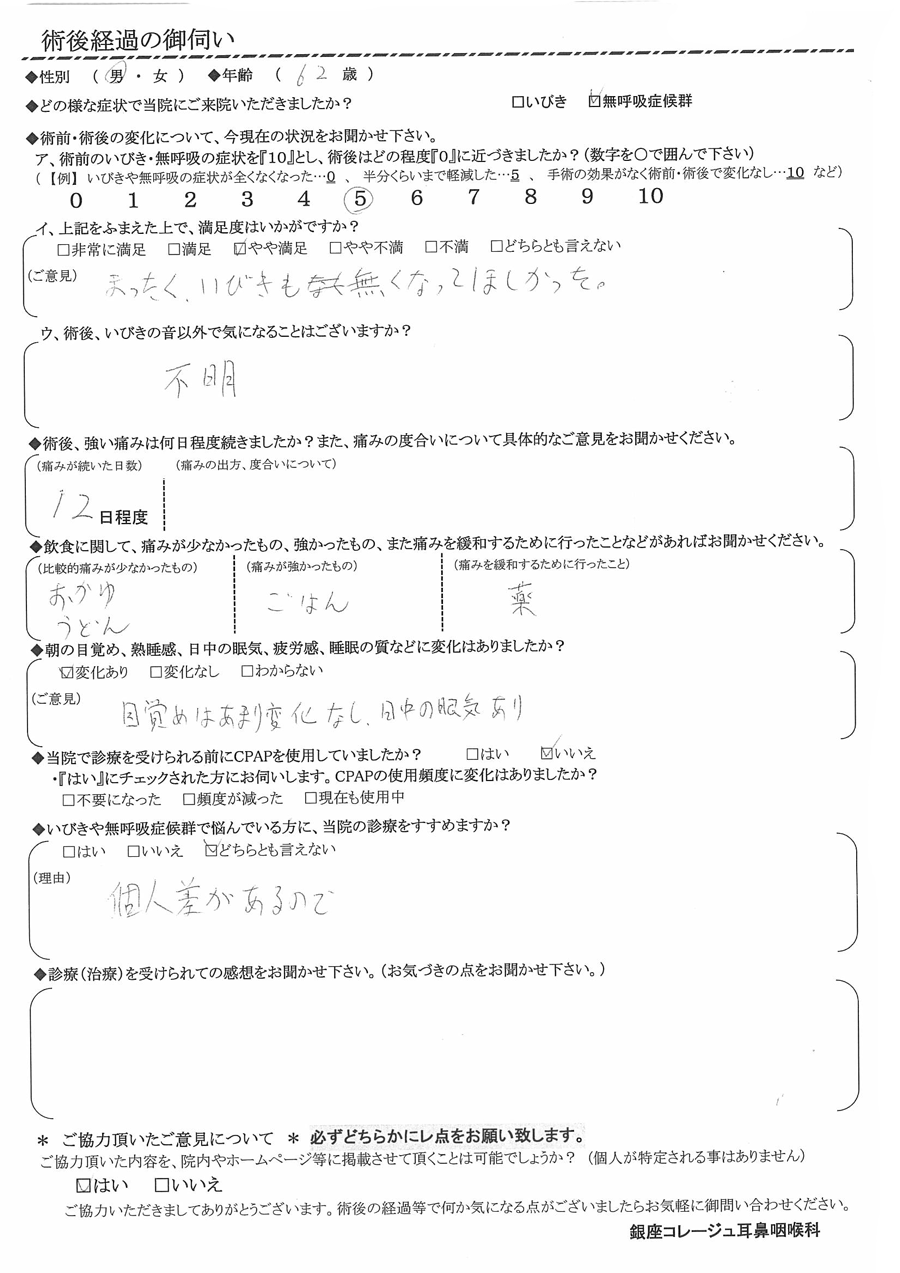 術後経過の御伺い
◆性別 （ 男 ・ 女 ） ◆年齢 （ 62 歳 ）
◆どの様な症状で当院にご来院いただきましたか？ □いびき ☑無呼吸症候群
◆術前・術後の変化について、今現在の状況をお聞かせ下さい。
ア、術前のいびき・無呼吸の症状を『10』とし、術後はどの程度『0』に近づきましたか？（数字を○で囲んで下さい）
（【例】 いびきや無呼吸の症状が全くなくなった…0 、 半分くらいまで軽減した…5 、 手術の効果がなく術前・術後で変化なし…10 など）
0 1 2 3 4 ⑤ 6 7 8 9 10
イ、上記をふまえた上で、満足度はいかがですか？
□非常に満足 □満足 ☑やや満足 □やや不満 □不満 □どちらとも言えない
（ご意見） まったく、いびきも無くなってほしかった。
ウ、術後、いびきの音以外で気になることはございますか？
不明
◆術後、強い痛みは何日程度続きましたか？また、痛みの度合いについて具体的なご意見をお聞かせください。
（痛みが続いた日数） （痛みの出方、度合いについて）
12日程度
◆飲食に関して、痛みが少なかったもの、強かったもの、また痛みを緩和するために行ったことなどがあればお聞かせください。
（比較的痛みが少なかったもの） （痛みが強かったもの） （痛みを緩和するために行ったこと）
おかゆ ごはん 薬
うどん
◆朝の目覚め、熟睡感、日中の眠気、疲労感、睡眠の質などに変化はありましたか？
☑変化あり □変化なし □わからない
（ご意見） 目覚めはあまり変化なし、日中の眠気あり
◆当院で診療を受けられる前にCPAPを使用していましたか？ □はい ☑いいえ
・『はい』にチェックされた方にお伺いします。CPAPの使用頻度に変化はありましたか？
□不要になった □頻度が減った □現在も使用中
◆いびきや無呼吸症候群で悩んでいる方に、当院の診療をすすめますか？
□はい □いいえ ☑どちらとも言えない
（理由） 個人差があるので
◆診療（治療）を受けられての感想をお聞かせ下さい。（お気づきの点をお聞かせ下さい。）
＊ ご協力頂いたご意見について ＊ 必ずどちらかにレ点をお願い致します。
ご協力頂いた内容を、院内やホームページ等に掲載させて頂くことは可能でしょうか？ （個人が特定される事はありません）
☑はい □いいえ
ご協力いただきましてありがとうございます。術後の経過等で何か気になる点がございましたらお気軽に御問い合わせください。
銀座コレージュ耳鼻咽喉科